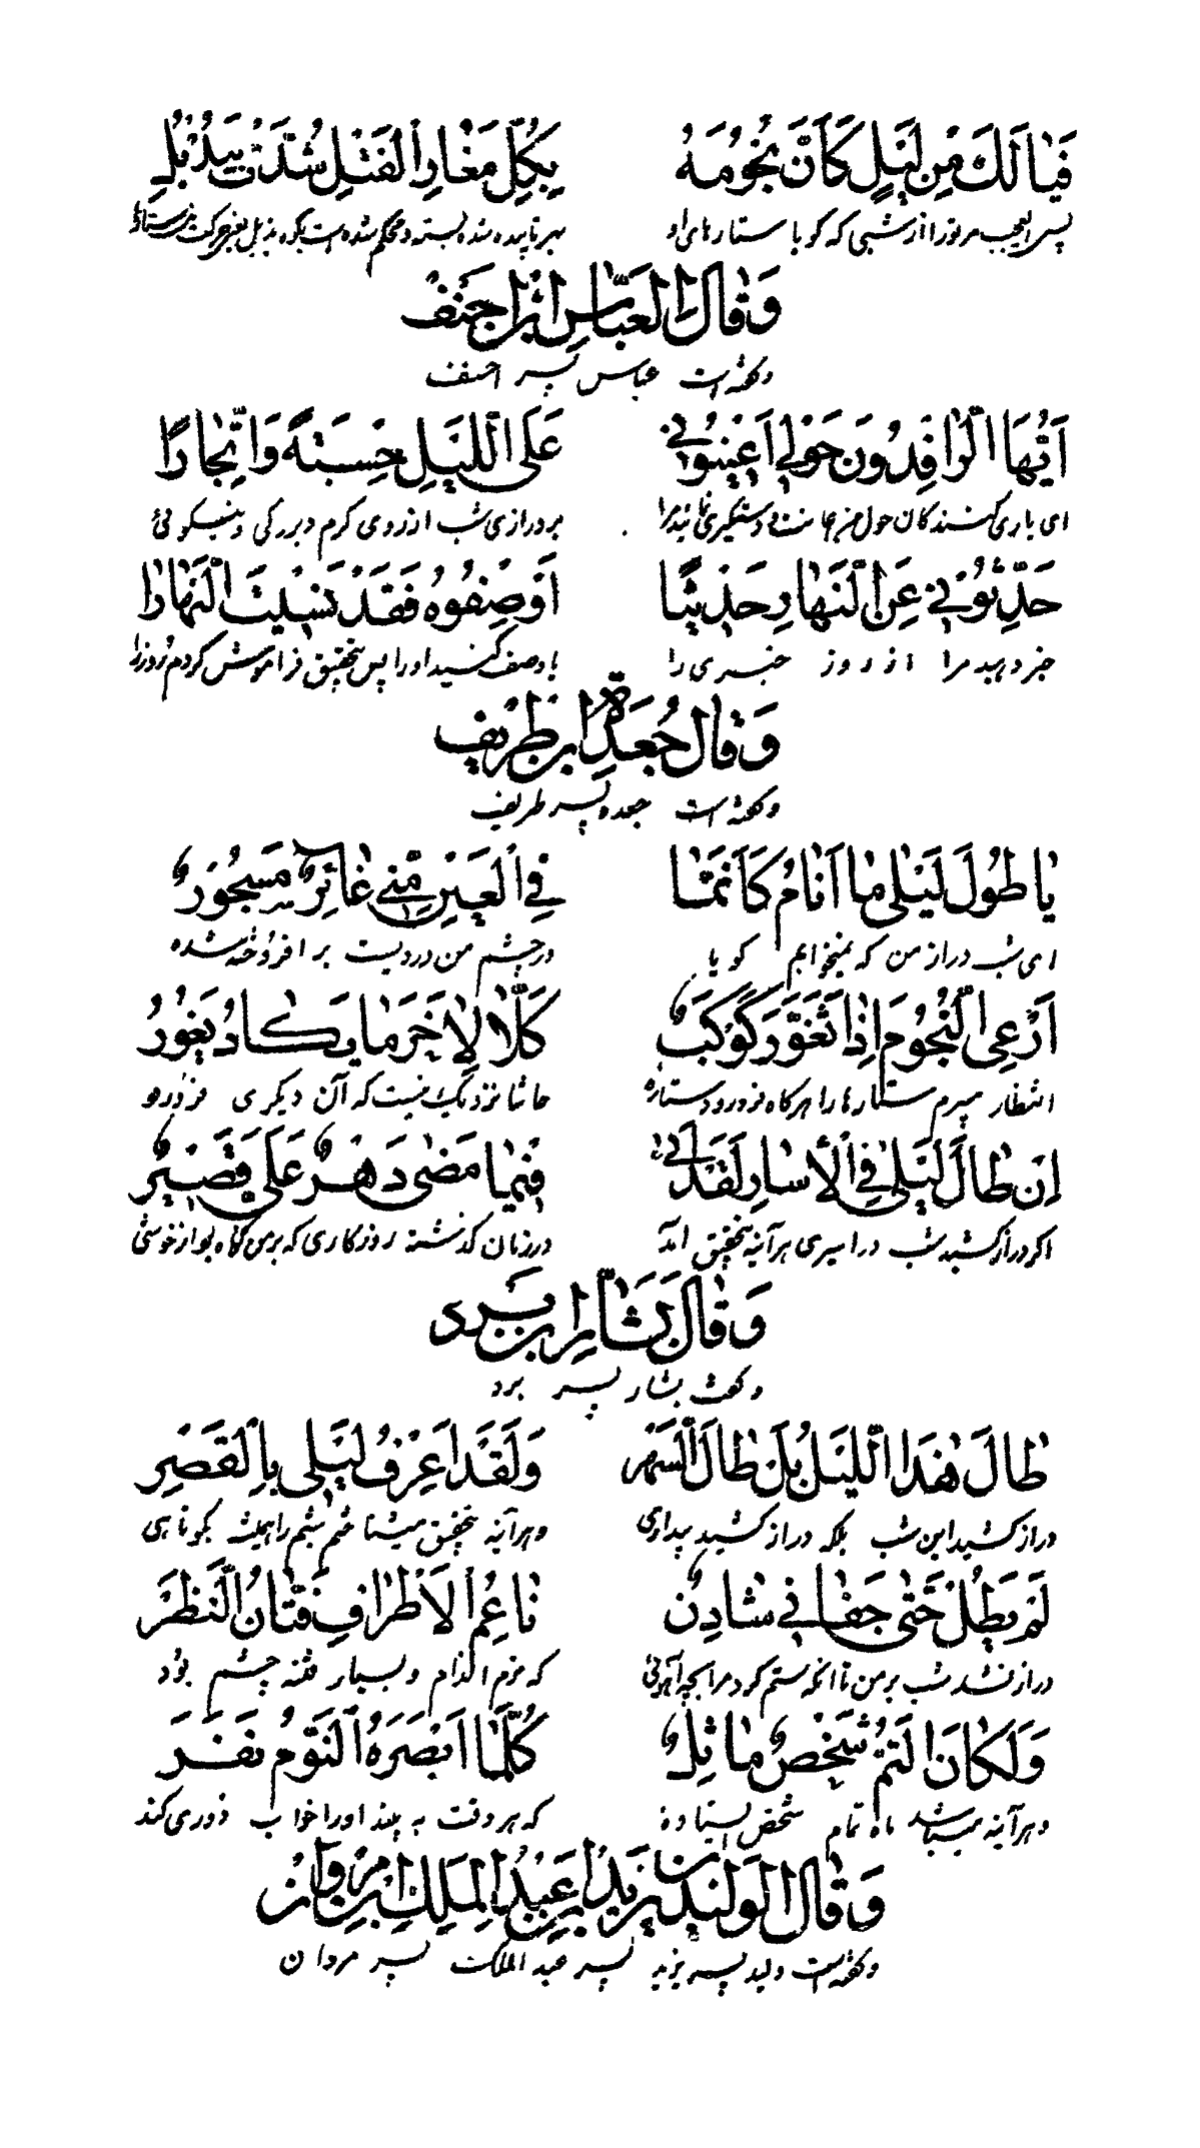 فَيَا لَكَ مِنْ لَيْلٍ كَأَنَّ نُجُومَهُ بِكُلِّ مَغَارِ الْفَتْلِ شُدَّتْ بِيَذْبُلِ
پس ای عجب مر تو را از شبی که گویا ستارهای او بهر تابیده شده بسته و محکم شده است بکوه یذبل
وَقَالَ الْعَبَّاسِ ابْنُ احْنَفْ
و گفته است عباس پسر احنف
اَيُّهَا الرَّاقِدُونَ حَوْلِي اَعِينُونِي عَلَى اللَّيْلِ حِسْبَةً وَاتِّجَارًا
ای یاری کنندگان حول من و دستگیری نمائید مرا بر درازی شب از روی کرم و بزرگی و نیکوئی
حَدِّثُونِي عَنِ النَّهَارِ حَدِيثًا اَوْ صِفُوهُ فَقَدْ نَسِيتُ النَّهَارَا
خبر دهید مرا از روز خبری را یا وصف کنید او را پس بتحقیق فراموش کردم روز را
وَقَالَ جُعْدَةِ ابْنِ ظَرِيفِ
و گفته است جعده پسر ظریف
يَا طُولَ لَيْلِي مَا اَنَامُ كَاَنَّمَا فِي الْعَيْنِ مِنِّي غَائِرٌ مَسْجُورٌ
ای شب دراز من که نمیخوابم گویا در چشم من دردیست بر افروخته شده
اَرْعِي النُّجُومَ اِذَا تَغَوَّرَ كَوْكَبٌ كَلَّا لِاخَرَ مَا يَكَادُ يَغُورُ
انتظار میبرم ستارها را هرگاه فرو رود ستاره حاشا نزدیک نیست که آن دیگری فرو رود
اِنْ طَالَ لَيْلِي فِي الْأَسَارِ لَقَدْ اَتَى فِيمَا مَضَى دَهْرٌ عَلَيَّ قَصِيرٌ
اگر دراز کشید شب در اسیری هر آینه بتحقیق آمد در زمان گذشته روزگاری که بر من کوتاه بود از خوشی
وَقَالَ بَشَّارِ ابْنِ بُرد
و گفت بشار پسر برد
طَالَ هٰذَا اللَّيْلُ بَلْ طَالَ السَّهَرْ وَلَقَدْ اَعْرِفُ لَيْلِي بِالْقَصَرِ
دراز کشید این شب بلکه دراز کشید بیداری و هر آینه بتحقیق میشناختم شبم را همیشه بکوتاهی
لَمْ يَطُلْ حَتَّى جَفَانِي شَادِنٌ نَاعِمُ الْاَطْرَافِ فَتَّانُ النَّظَرْ
دراز نشد شب بر من تا آنکه ستم کرد مرا بچه آهوئی که نرم اندام و بسیار فتنه چشم بود
وَلَكَانَ التَّمُّ شَخْصٌ مَاثِلٌ كُلَّمَا اَبْصَرَهُ النَّوْمُ نَفَرَ
و هر آینه میباشد ماه تمام شخص ایستاده که هر وقت به بیند او را خواب دوری کند
وَقَالَ الْوَلِيدُ ابْنُ يَزِيدُ ابْنِ عَبْدُ الْمَلِكِ ابْنِ مَرْوَانْ
و گفته است ولید پسر یزید پسر عبد الملک پسر مروان